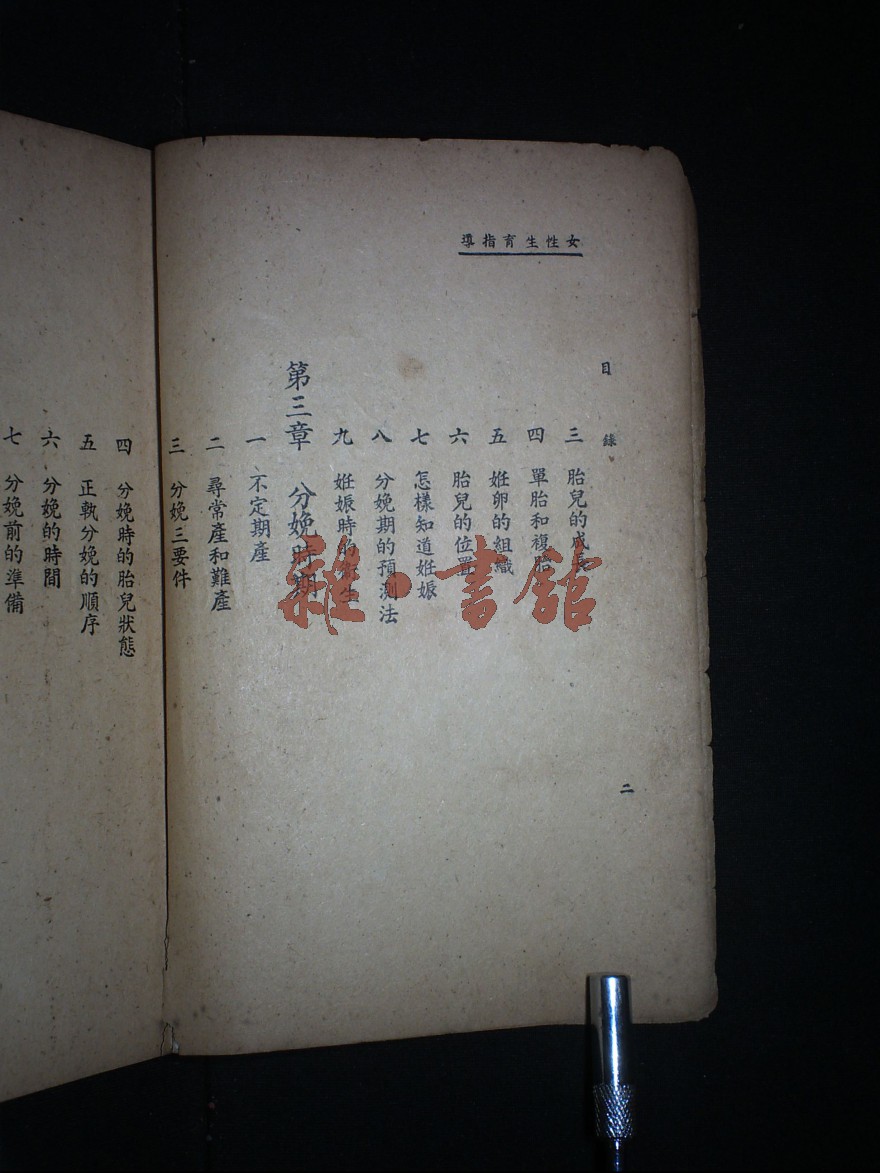 女性生育指導
目錄
三 胎兒的成長
四 單胎和複胎
五 妊卵的組織
六 胎兒的位置
七 怎樣知道妊娠
八 分娩期的預測法
九 妊娠時的衛生
第三章 分娩時期
一 不定期產
二 尋常產和難產
三 分娩三要件
二
四 分娩時的胎兒狀態
五 正執分娩的順序
六 分娩的時間
七 分娩前的準備
雜·書館